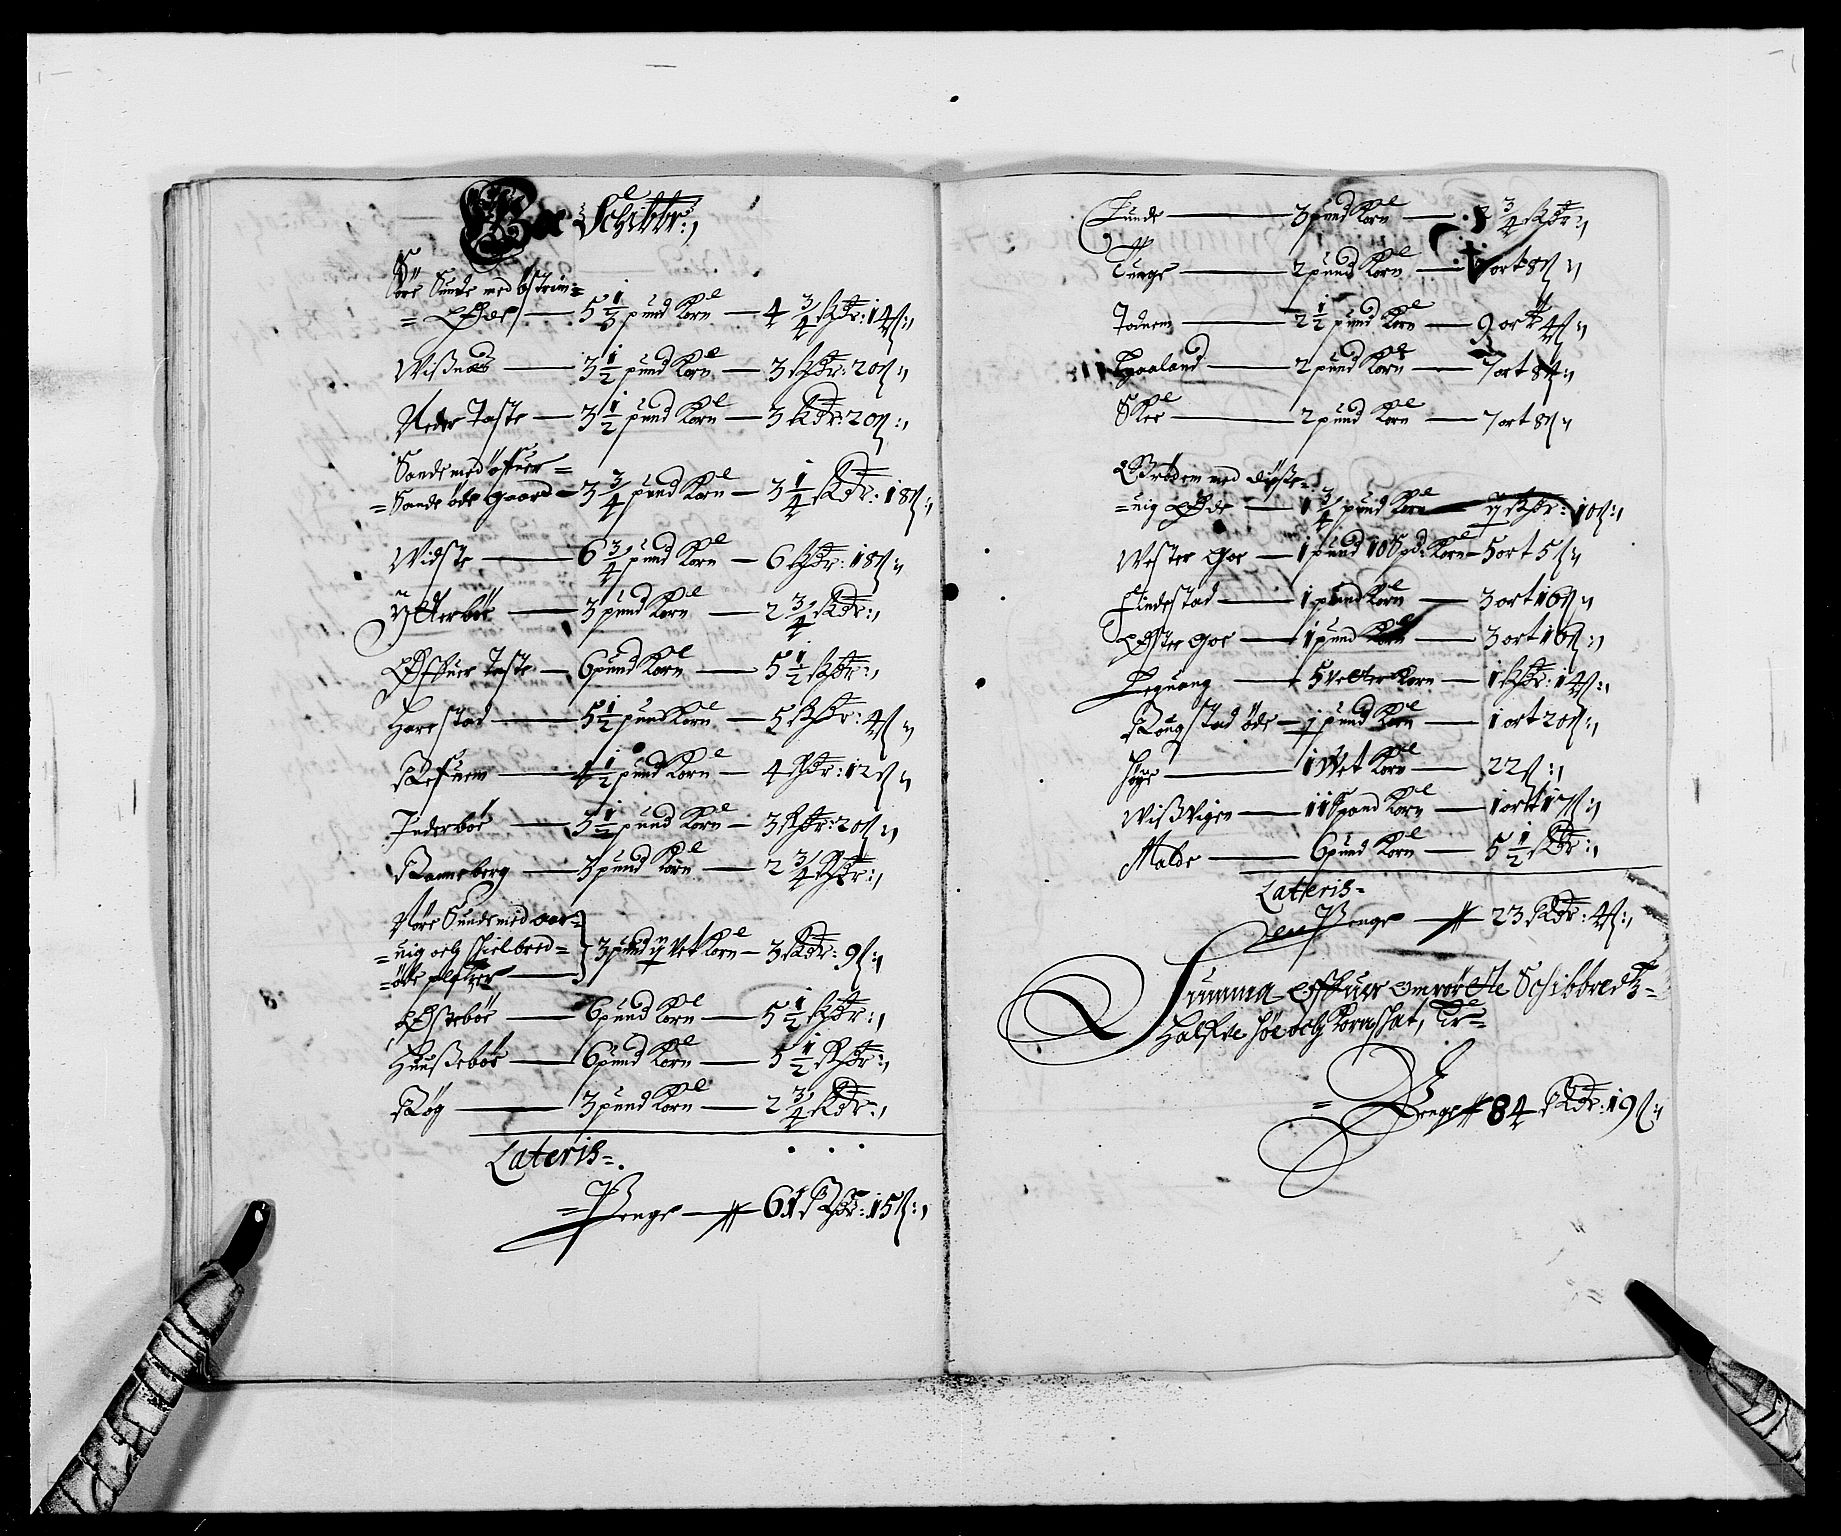 Schibbr:
Søre Sunde med østrim=
=Øde — 5 1/3 pund Korn — 4 3/4 Rdr: 14 s:
Wißnæs — 3 1/2 pund Korn — 3 Rdr: 20 s:
Neder Taste — 3 1/2 pund Korn — 3 Rdr: 20 s:
Sande med øfuer=
=Sande øde gaard — 3 3/4 pund Korn — 3 1/4 Rdr: 18 s:
Widste — 6 3/4 pund Korn — 6 Rdr: 18 s:
Ytterbøe — 3 pund Korn — 2 3/4 Rdr:
Øffuer Taste — 6 pund Korn — 5 1/2 Rdr:
Harestad — 5 1/2 pund Korn — 5 Rdr: 4 s:
Refnem — 4 1/2 pund Korn — 4 Rdr: 12 s:
Inderbøe — 3 1/2 pund Korn — 3 Rdr: 20 s:
Rameberg — 3 pund Korn — 2 3/4 Rdr:
Nøre Sunde med
=uig och Schielbred=
=øde pletzer — 3 pund Vet Korn — 3 Rdr: 9 s:
Østebøe — 6 pund Korn — 5 1/2 Rdr:
Huußebøe — 6 pund Korn — 5 1/2 Rdr:
Røg — 3 pund Korn — 2 3/4 Rdr:
Lateris
=Penge — 61 Rdr: 15 s:
Lunde — 3 pund Korn — 2 3/4 Rdr:
Tunge — 2 pund Korn — 7 ort 8 s:
Todnem — 2 1/2 pund Korn — 9 ort 4 s:
Haaland — 2 pund Korn — 7 ort 8 s:
Skee — 2 pund Korn — 7 ort 8 s:
Grødem med
=uig Øde — 1 3/4 pund Korn — Rdr: 10 s:
Wester Goe — 1 pund 10 Spd: Korn — 5 ort 5 s:
Findestad — 1 pund Korn — 3 ort 16 s:
Øster Goe — 1 pund Korn — 3 ort 16 s:
Leguang — 5 Vetter Korn — 1 Rdr: 14 s:
Rougstad øde — pund Korn — 1 ort 20 s:
Høye — 1 Wet Korn — 22 s:
Wißwigen — 11 Spand Korn — 1 ort 17 s:
Malde — 6 pund Korn — 5 1/2 Rdr:
Latteris=
Penge — 23 Rdr: 4 s:
Summa Offuer Omrørte Schibbredtz=
Halfue høe och Kornschat, Er=
=Penge 84 Rdr: 19 s: